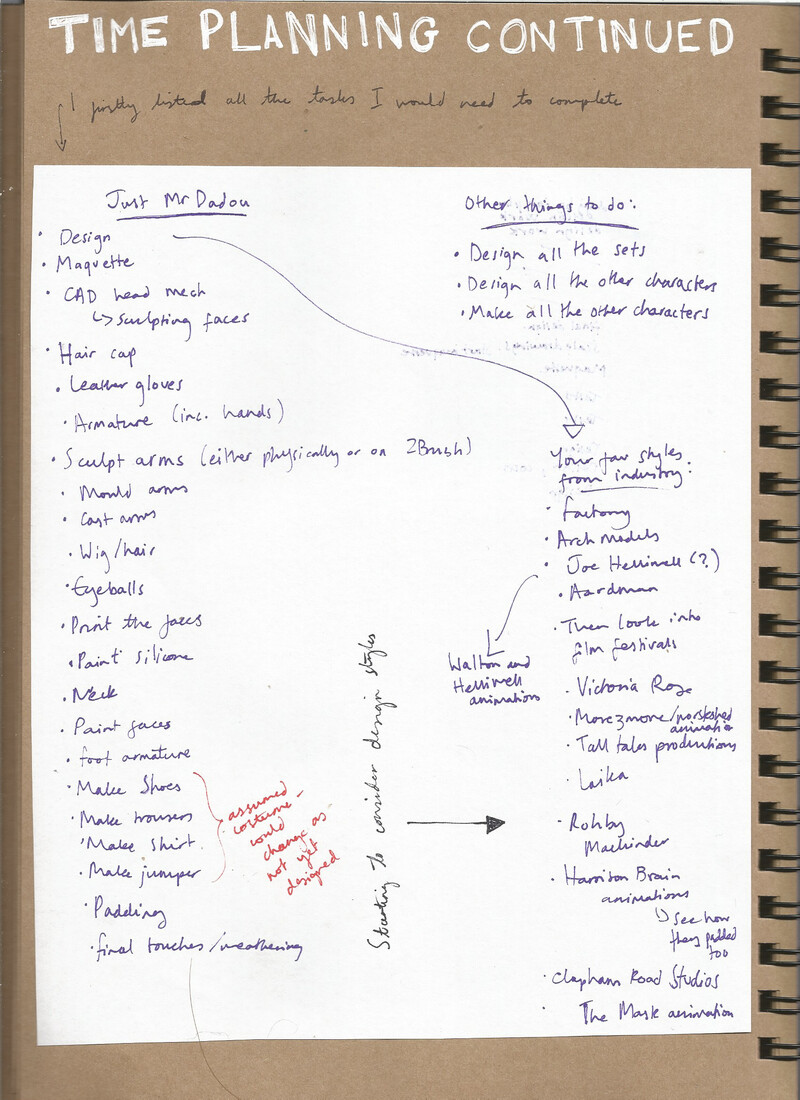 TIME PLANNING CONTINUED
I firstly listed all the tasks I would need to complete
Just Mr Dadou
• Design
• Maquette
• CAD head mech
↳ Sculpting faces
• Hair cap
• Leather gloves
• Armature (inc. hands)
• Sculpt arms (either physically or on ZBrush)
• Mould arms
• Cast arms
• Wig/hair
• Eyeballs
• Print the faces
• Paint silicone
• Neck
• Paint faces
• foot armature
• Make Shoes
• Make trousers
• Make shirt.
• Make jumper
• Padding
• final touches/weathering
assumed
costume
would
change as
not yet
designed
Starting to consider design styles
Other things to do:
• Design all the sets
• Design all the other characters
• Make all the other characters
Your fav styles
from industry:
• factory
• Arch Models
• Joe Helliwell (?)
• Aardman
Walton and
Helliwell
animations
• Then look into
film festivals
• Victoria Rose
• More2more/
• Tall tales productions
• Laika
• Rohby
Machinder
• Harrison Brain
animations
↳ see how
they padded
too
• Clapham Road Studios
• The Mask animation